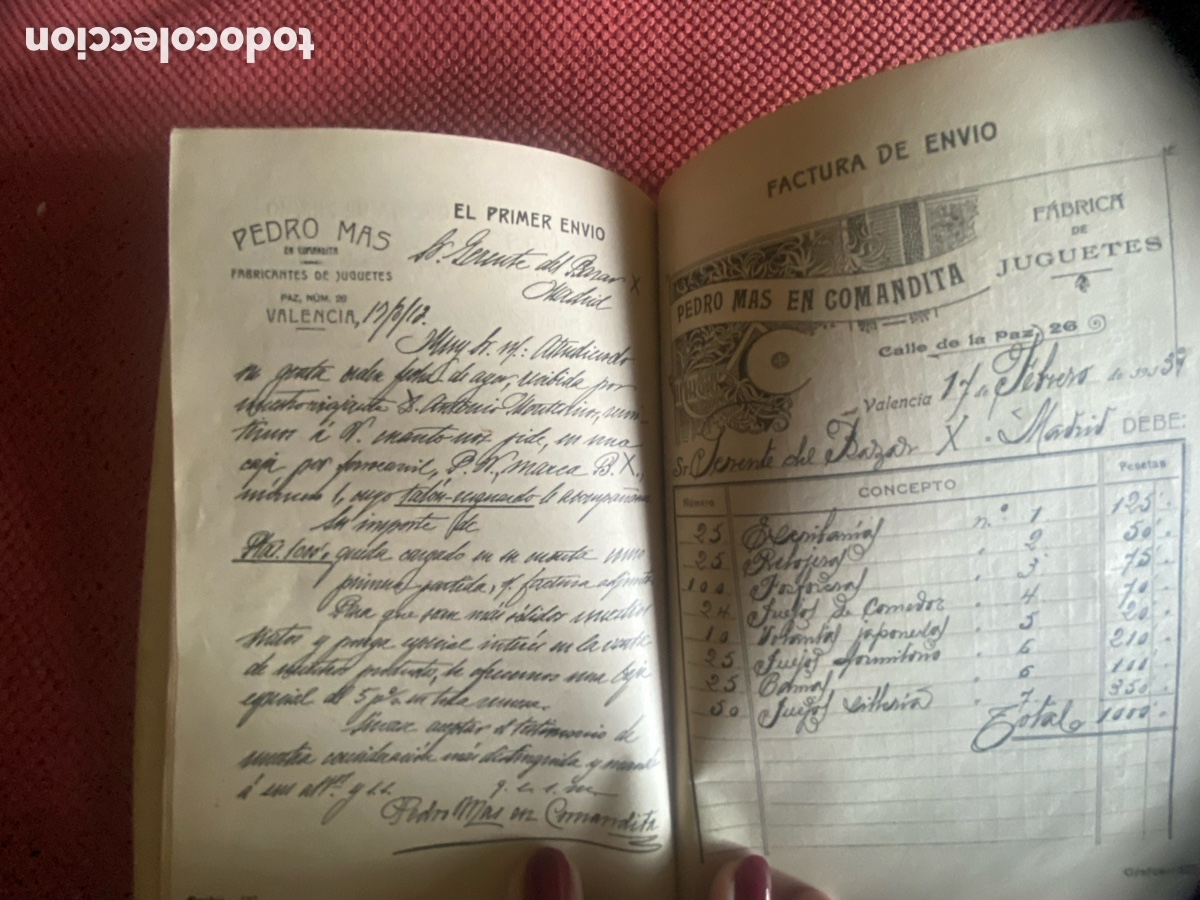 todocoleccion
EL PRIMER ENVIO
PEDRO MAS
EN COMANDITA
FABRICANTES DE JUGUETES
PAZ, NÚM.
VALENCIA,
Sr. Gerente del Bazar X
Madrid
Muy Sr. m: Atendiendo
su grata orden fecha de ayer, recibida por
nuestro viajante D. Antonio
á V. cuanto nos pide, en una
caja por ferrocarril, P. V., marca B. X.,
número 1, cuyo talón-resguardo le acompañamos
Su importe de
queda cargado en su cuenta como
primera partida, s/ factura adjunta
Para que sean más sólidos nuestros
tratos y ponga especial interés en la venta
de nuestros productos, le ofrecemos una caja
especial del 5 p% en toda remesa.
aceptar el testimonio de
nuestra consideración más distinguida y mande
á sus
Pedro Mas en Comandita
FACTURA DE ENVIO
FÁBRICA
DE
JUGUETES
PEDRO MAS EN COMANDITA
Calle de la Paz, 26
Valencia 17 de Febrero de
Sr Gerente del Bazar X. Madrid DEBE:
Número CONCEPTO Pesetas
25 Escribanías n.º 1 125
25 Relojeras 2 50
100 Fosforeras 3 75
24 Juegos de Comedor 4 70
10 Volantes japoneses 5 20
25 Juegos dormitorio 6 210
25 Camas 6 100
50 Juegos sillería 7 350
Total 1000